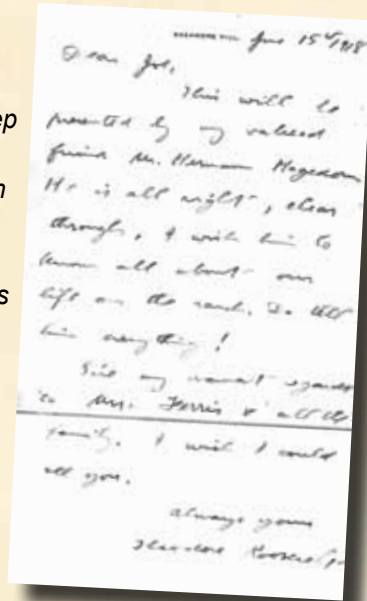 June 15th 1918
Dear Joe,
This will be
presented by my valued
friend Mr. Herman Hagedorn
He is all right, clear
through, I wish him to
know all about our
life on the ranch. Do tell
him everything!
Give my warmest regards
to Mrs. Ferris & all the
family. I wish I could
see you.
Always yours
Theodore Roosevelt
ep
n
s